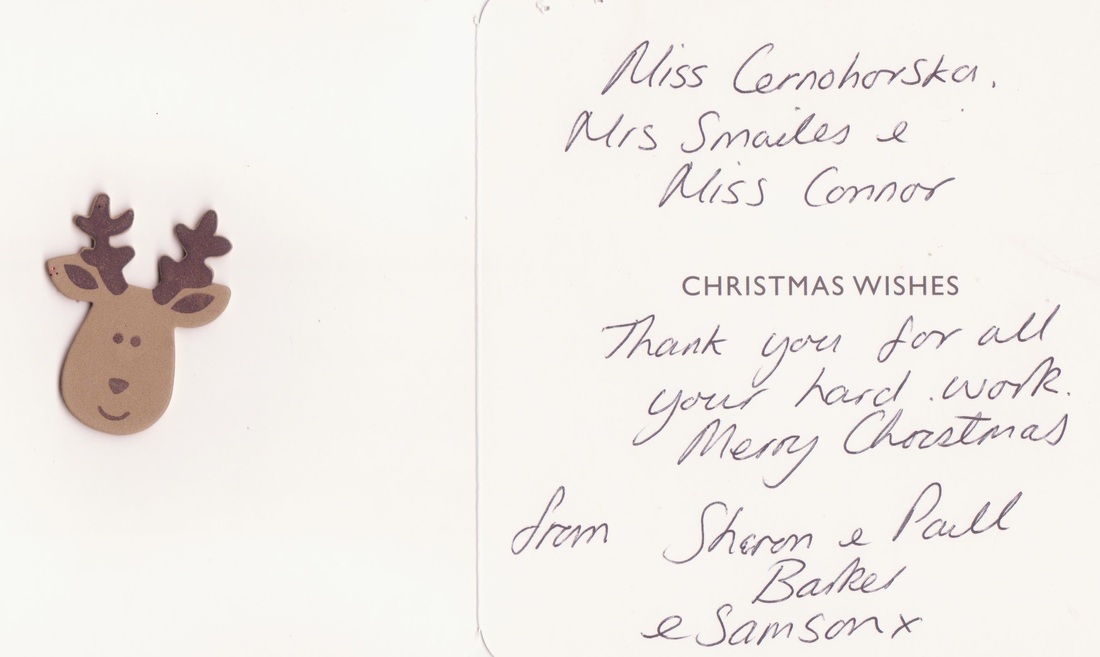 Miss Cernohorska,
Mrs Smailes e
Miss Connor
CHRISTMAS WISHES
Thank you for all
your hard work.
Merry Christmas
from Sharon e Paull
Barker
e Samson x